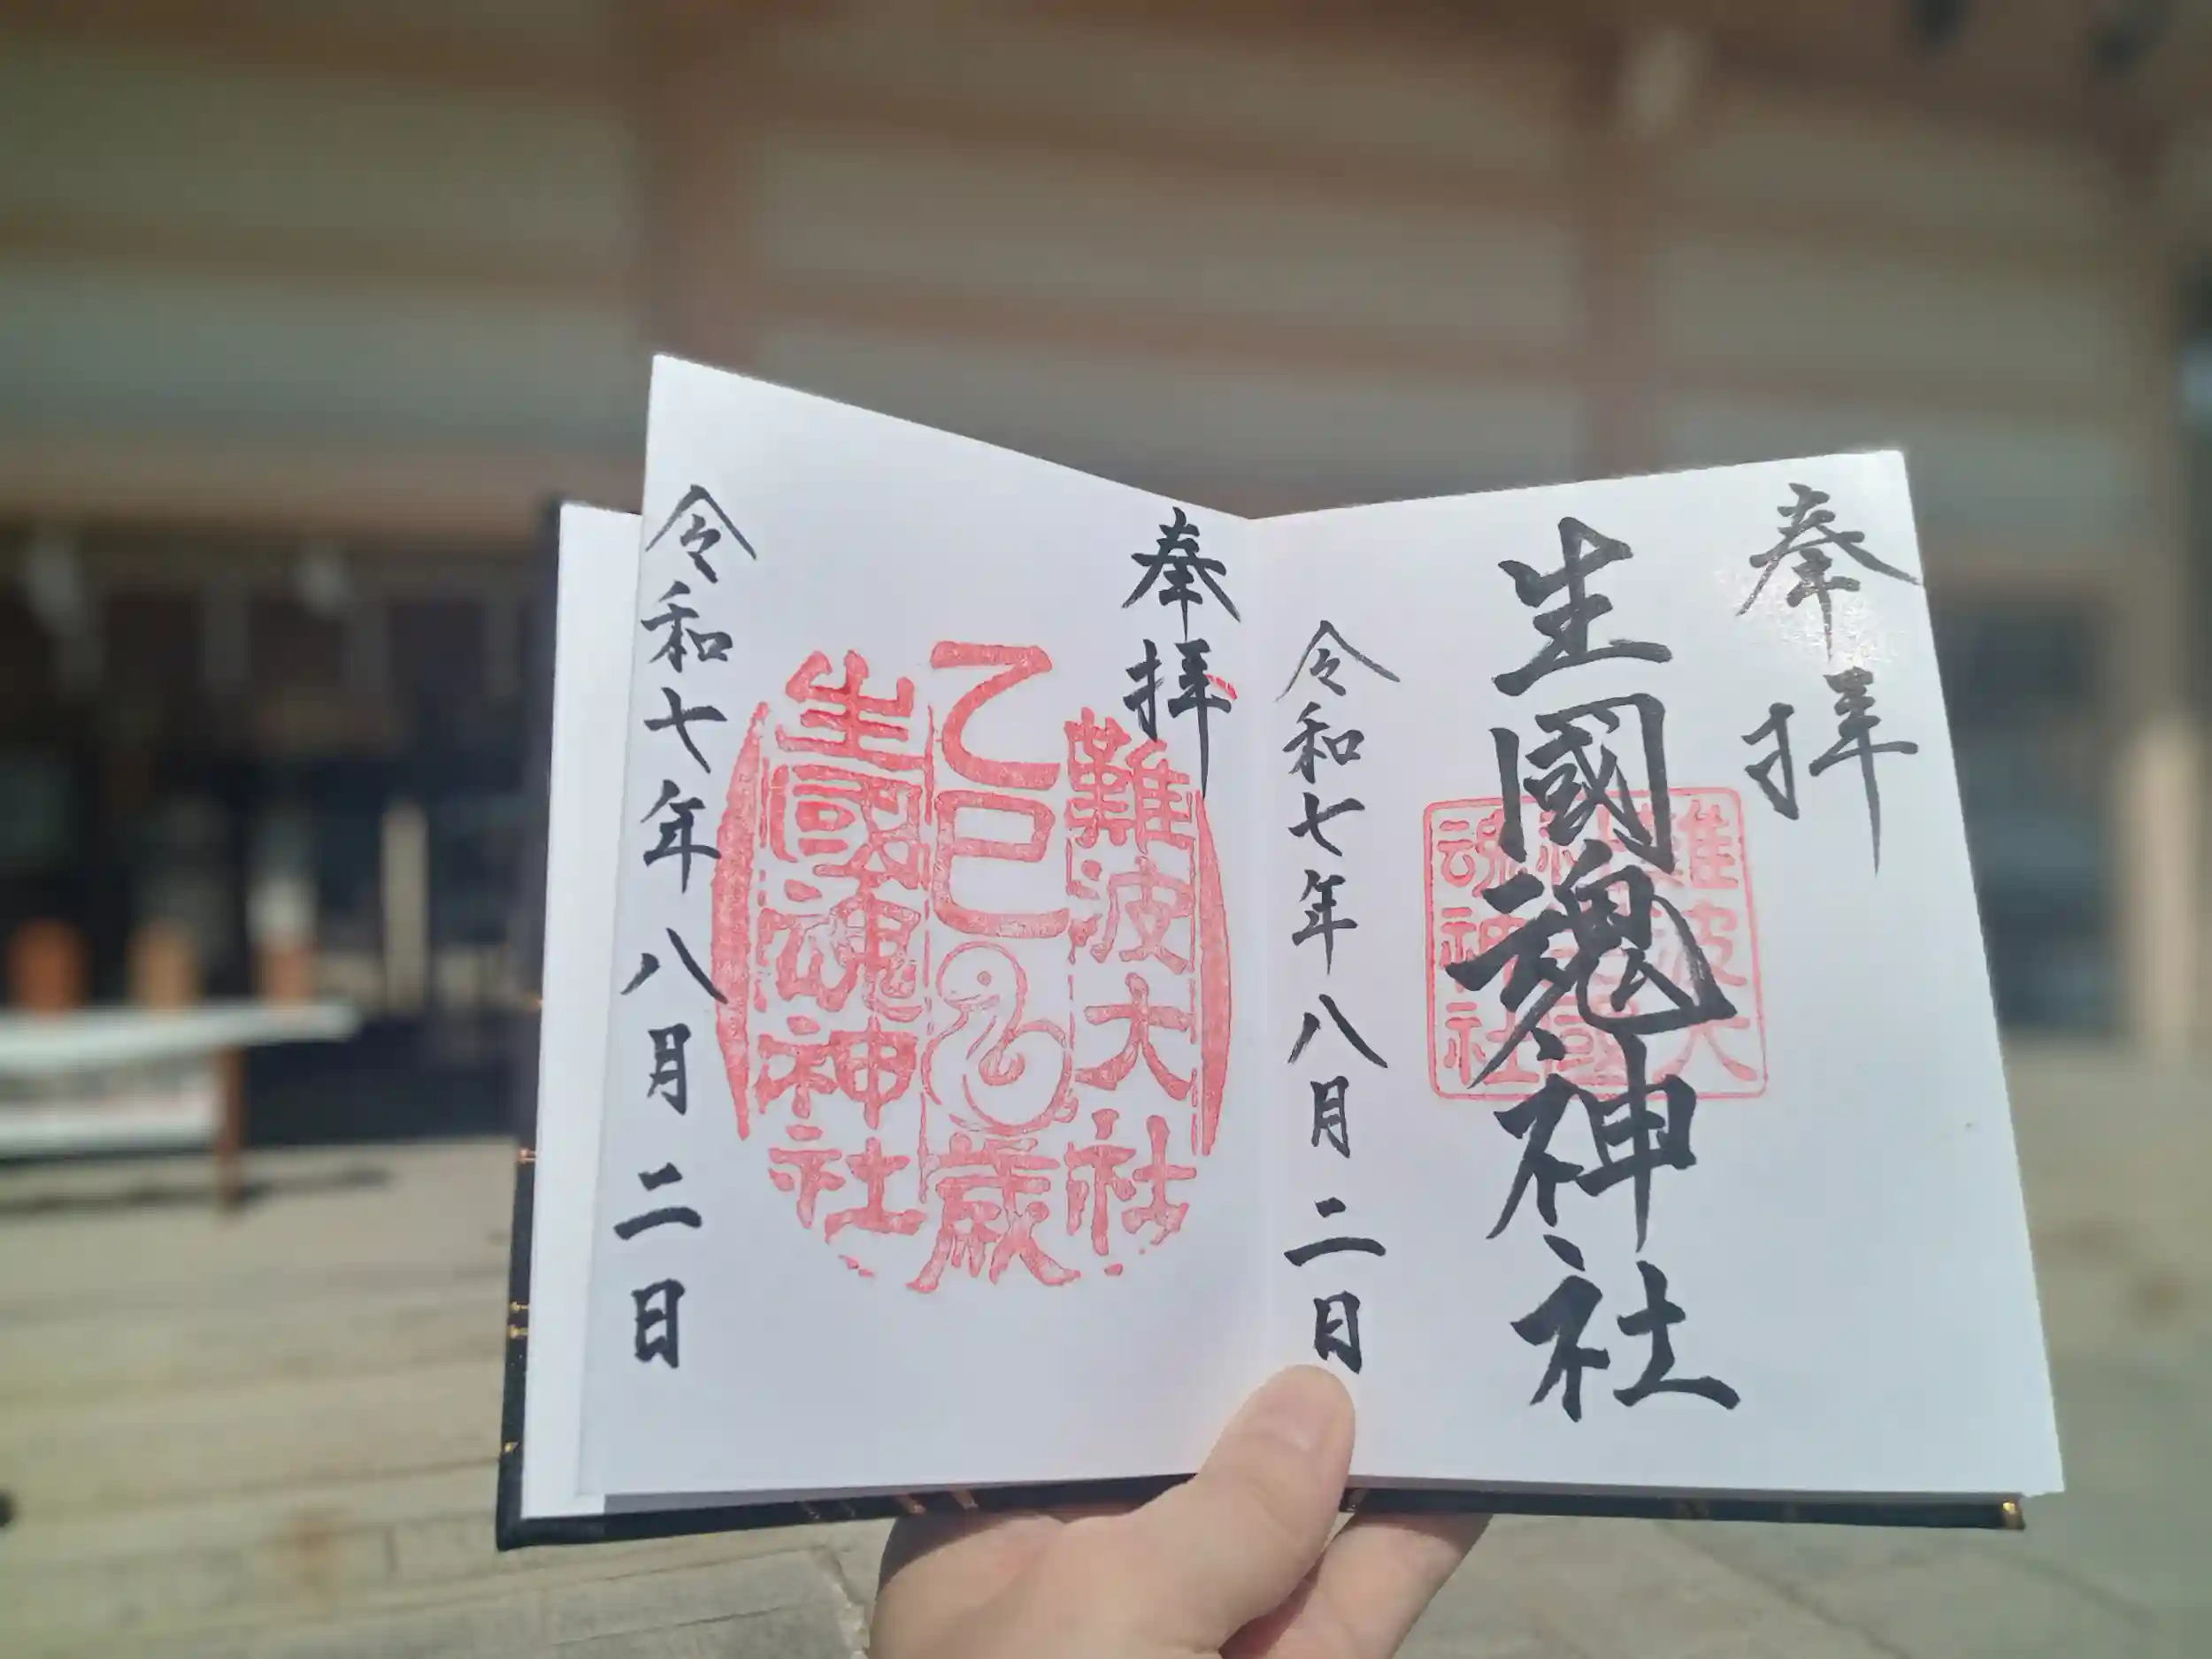 奉拝
生國魂神社
難波大社生國魂神社
令和七年八月二日
奉拝
難波大社
乙巳歳
生國魂神社
令和七年八月二日